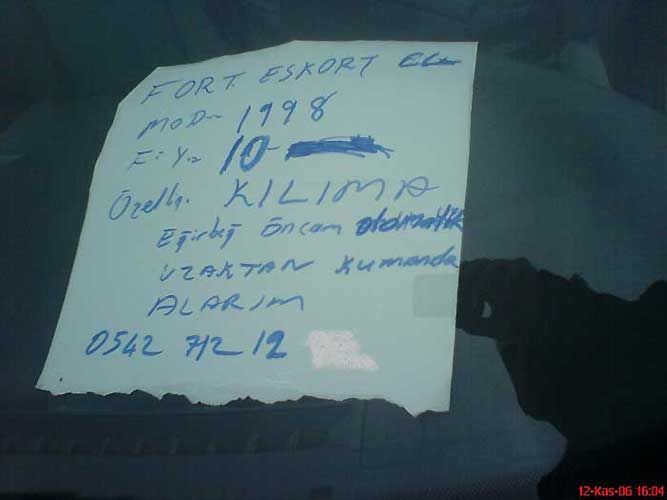 FORT ESKORT CL
MOD- 1998
FİY.. 10-
Özellğ. KILIMA
Eğirbeğ Öncam otomatik
UZAKTAN kumanda
ALARIM
0542 712 12
12-Kas-06 16:04